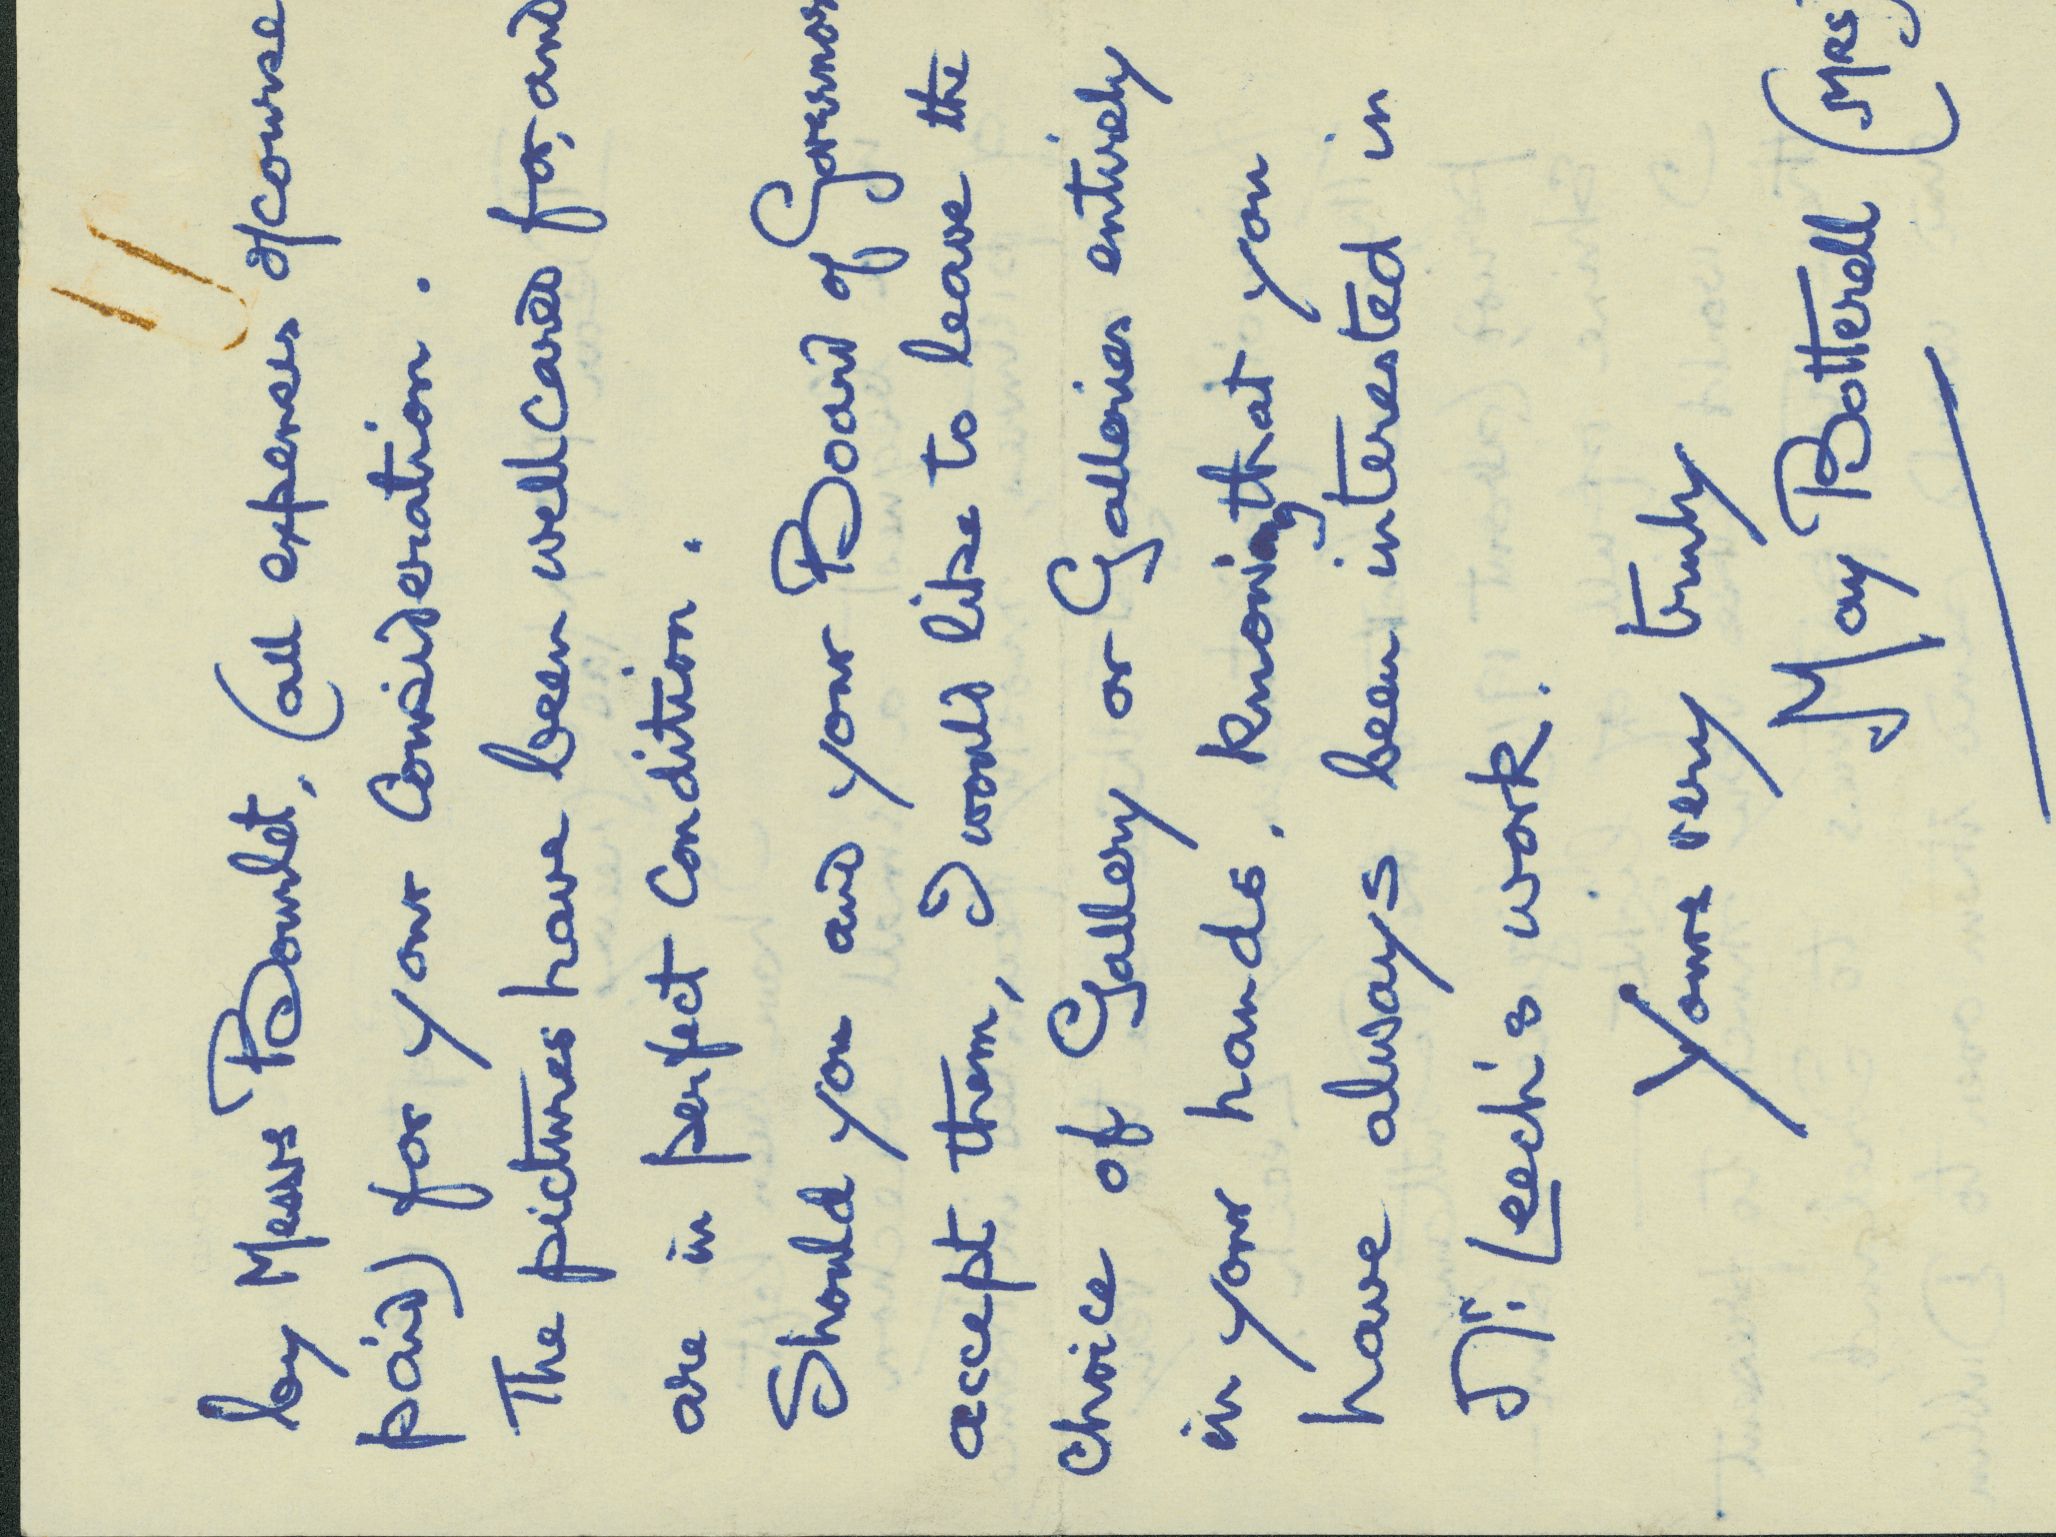 by Messrs Bourlet, (all expenses of course
paid) for your Consideration.
The pictures have been well cared for, and
are in perfect Condition.
Should you and your Board of Governors
accept them, I would like to leave the
choice of Gallery or Galleries entirely
in your hands, knowing that you
have always been interested in
Mr. Leech's work.
Yours very truly
May Botterell (Mrs)